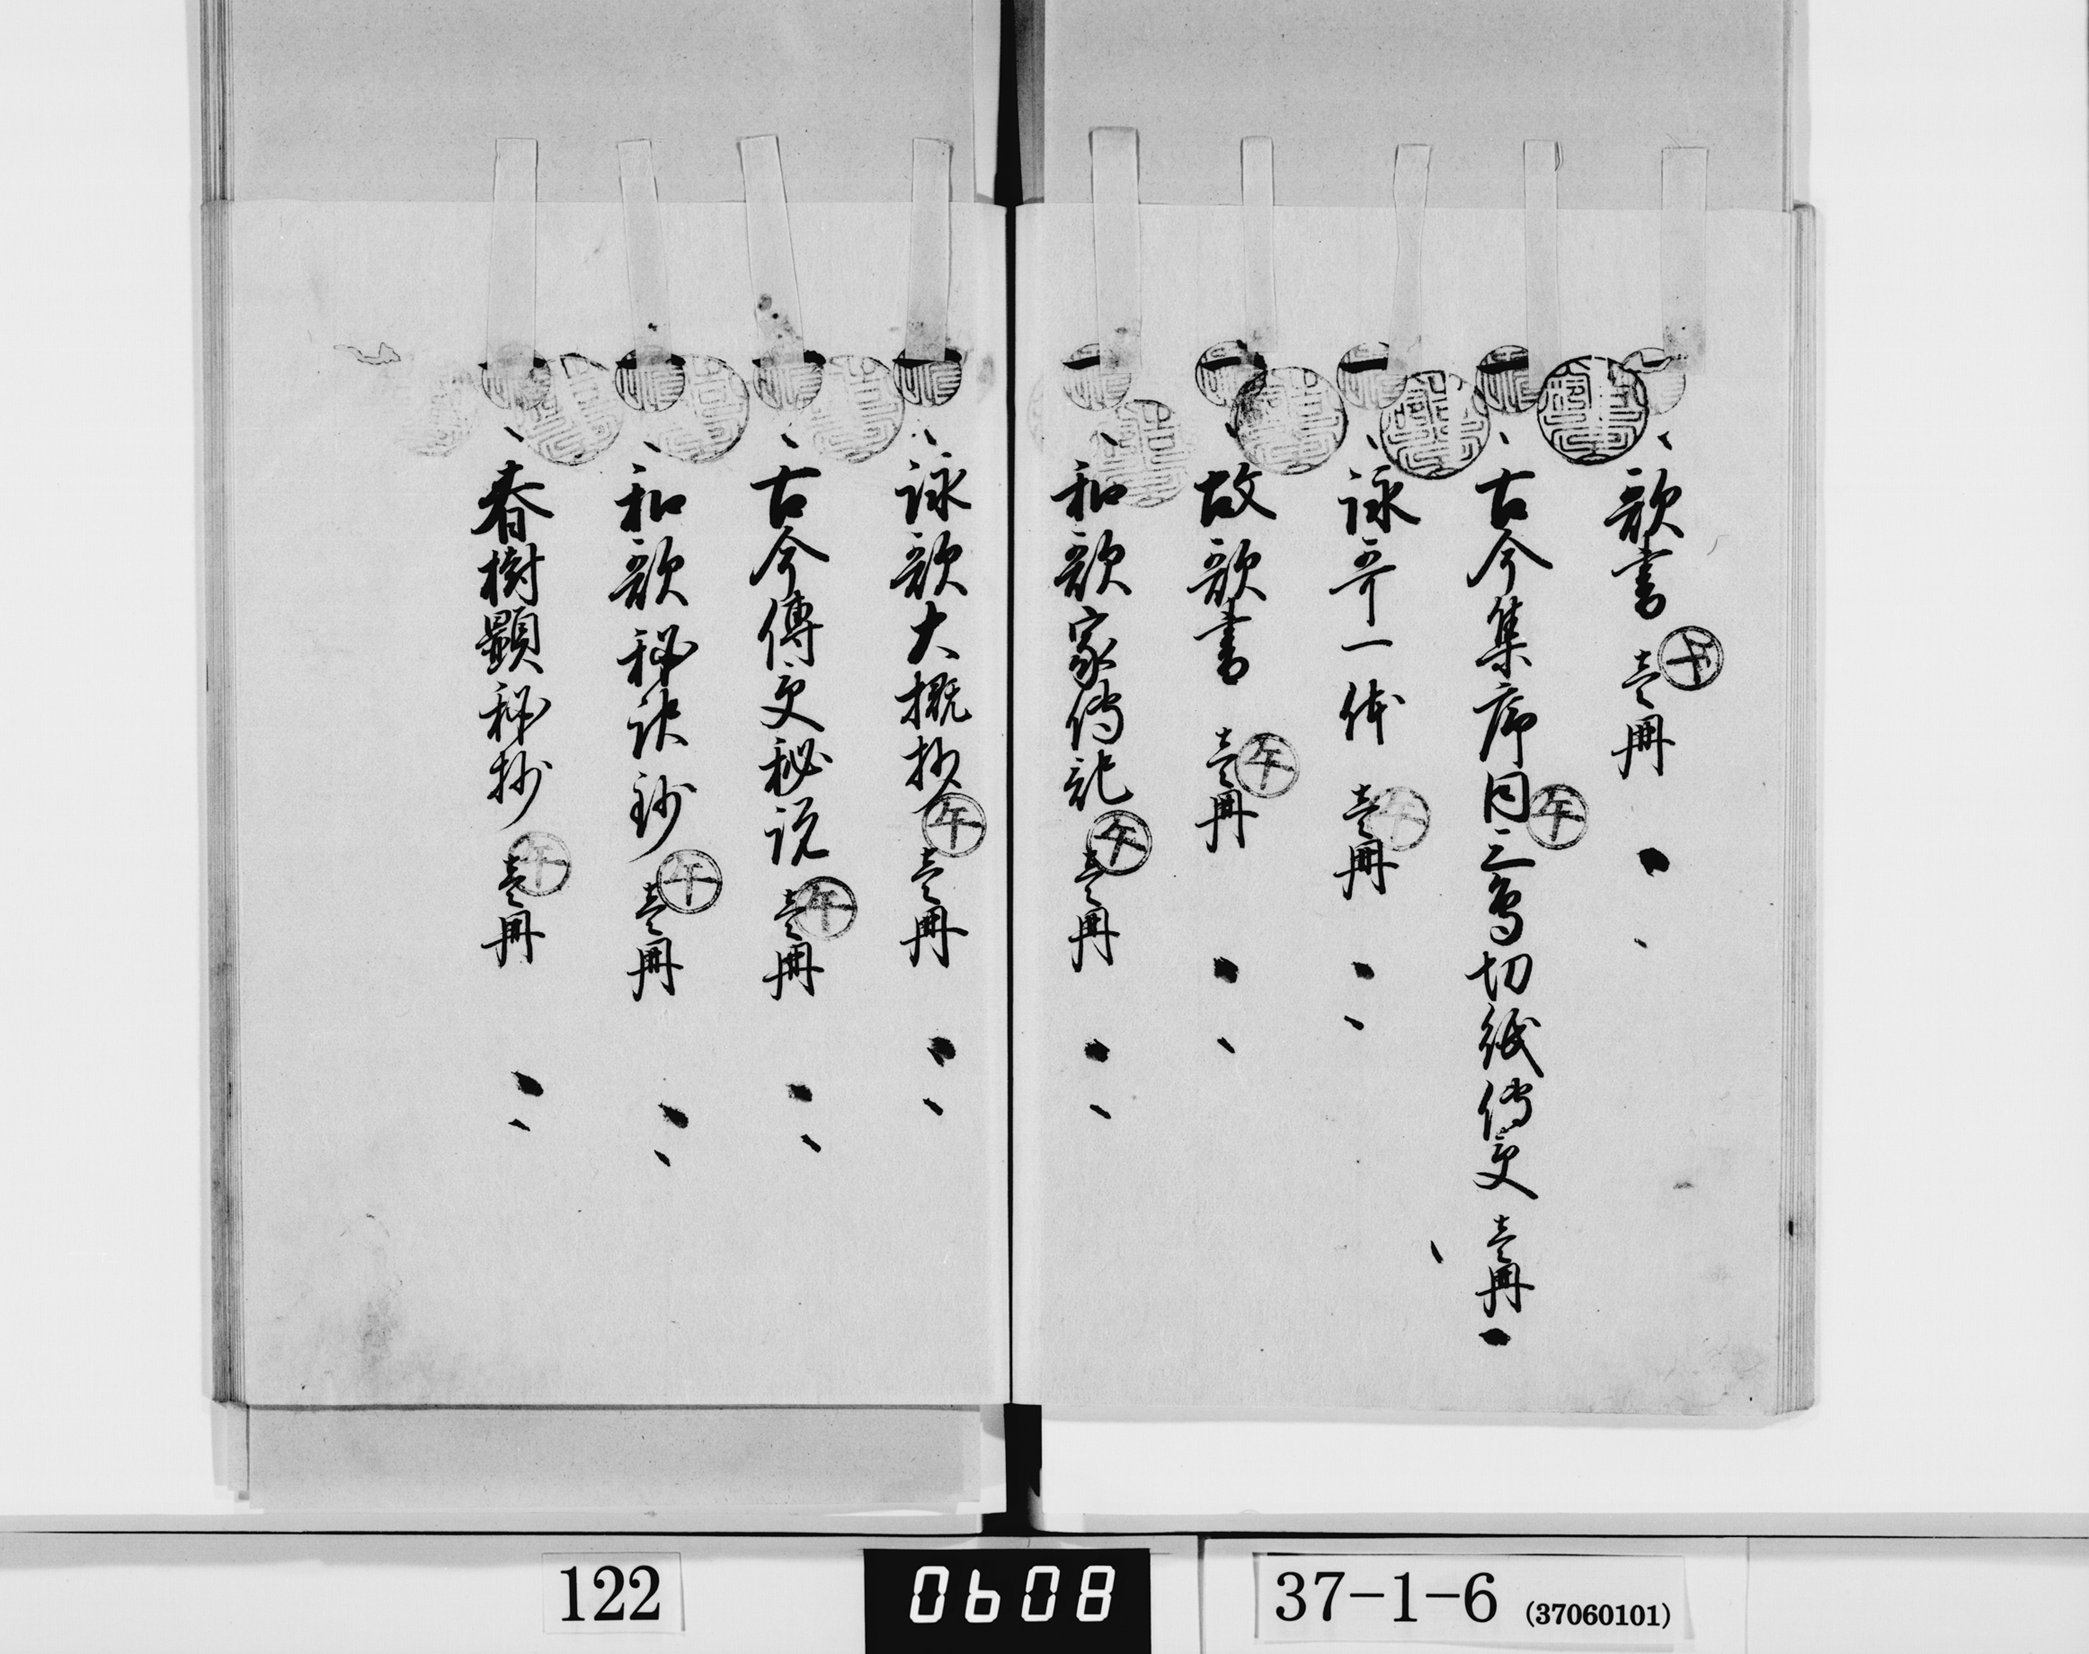 一、歌書 午 壱冊
一、古今集序同三鳥切紙傳受 午 壱冊
一、詠哥一体 午 壱冊
一、故歌書 午 壱冊
一、和歌家傳記 午 壱冊
一、詠歌大概抄 午 壱冊
一、古今傳受秘説 午 壱冊
一、和歌秘決鈔 午 壱冊
一、春樹顕秘抄 午 壱冊
122
0608
37-1-6 (37060101)